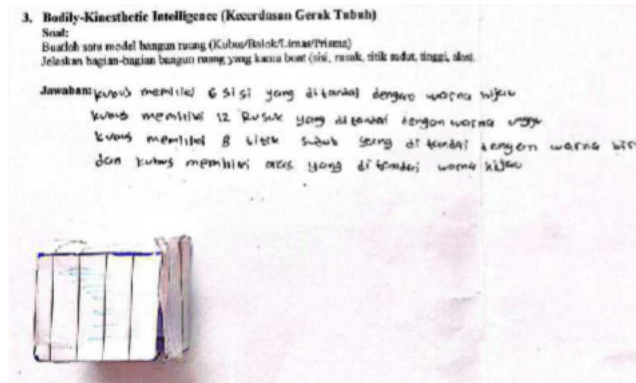 3. Bodily-Kinesthetic Intelligence (Kecerdasan Gerak Tubuh)
Soal:
Buatlah satu model bangun ruang (Kubus/Balok/Limas/Prisma)
Jelaskan bagian-bagian bangun ruang yang kamu buat (sisi, rusuk, titik sudut, tinggi, alas).
Jawaban: kubus memiliki 6 sisi yang ditandai dengan warna hijau
kubus memiliki 12 Rusuk yang ditandai dengan warna ungu
kubus memiliki 8 titik sudut yang ditandai dengan warna bir
dan kubus memiliki yang ditandai warna hijau